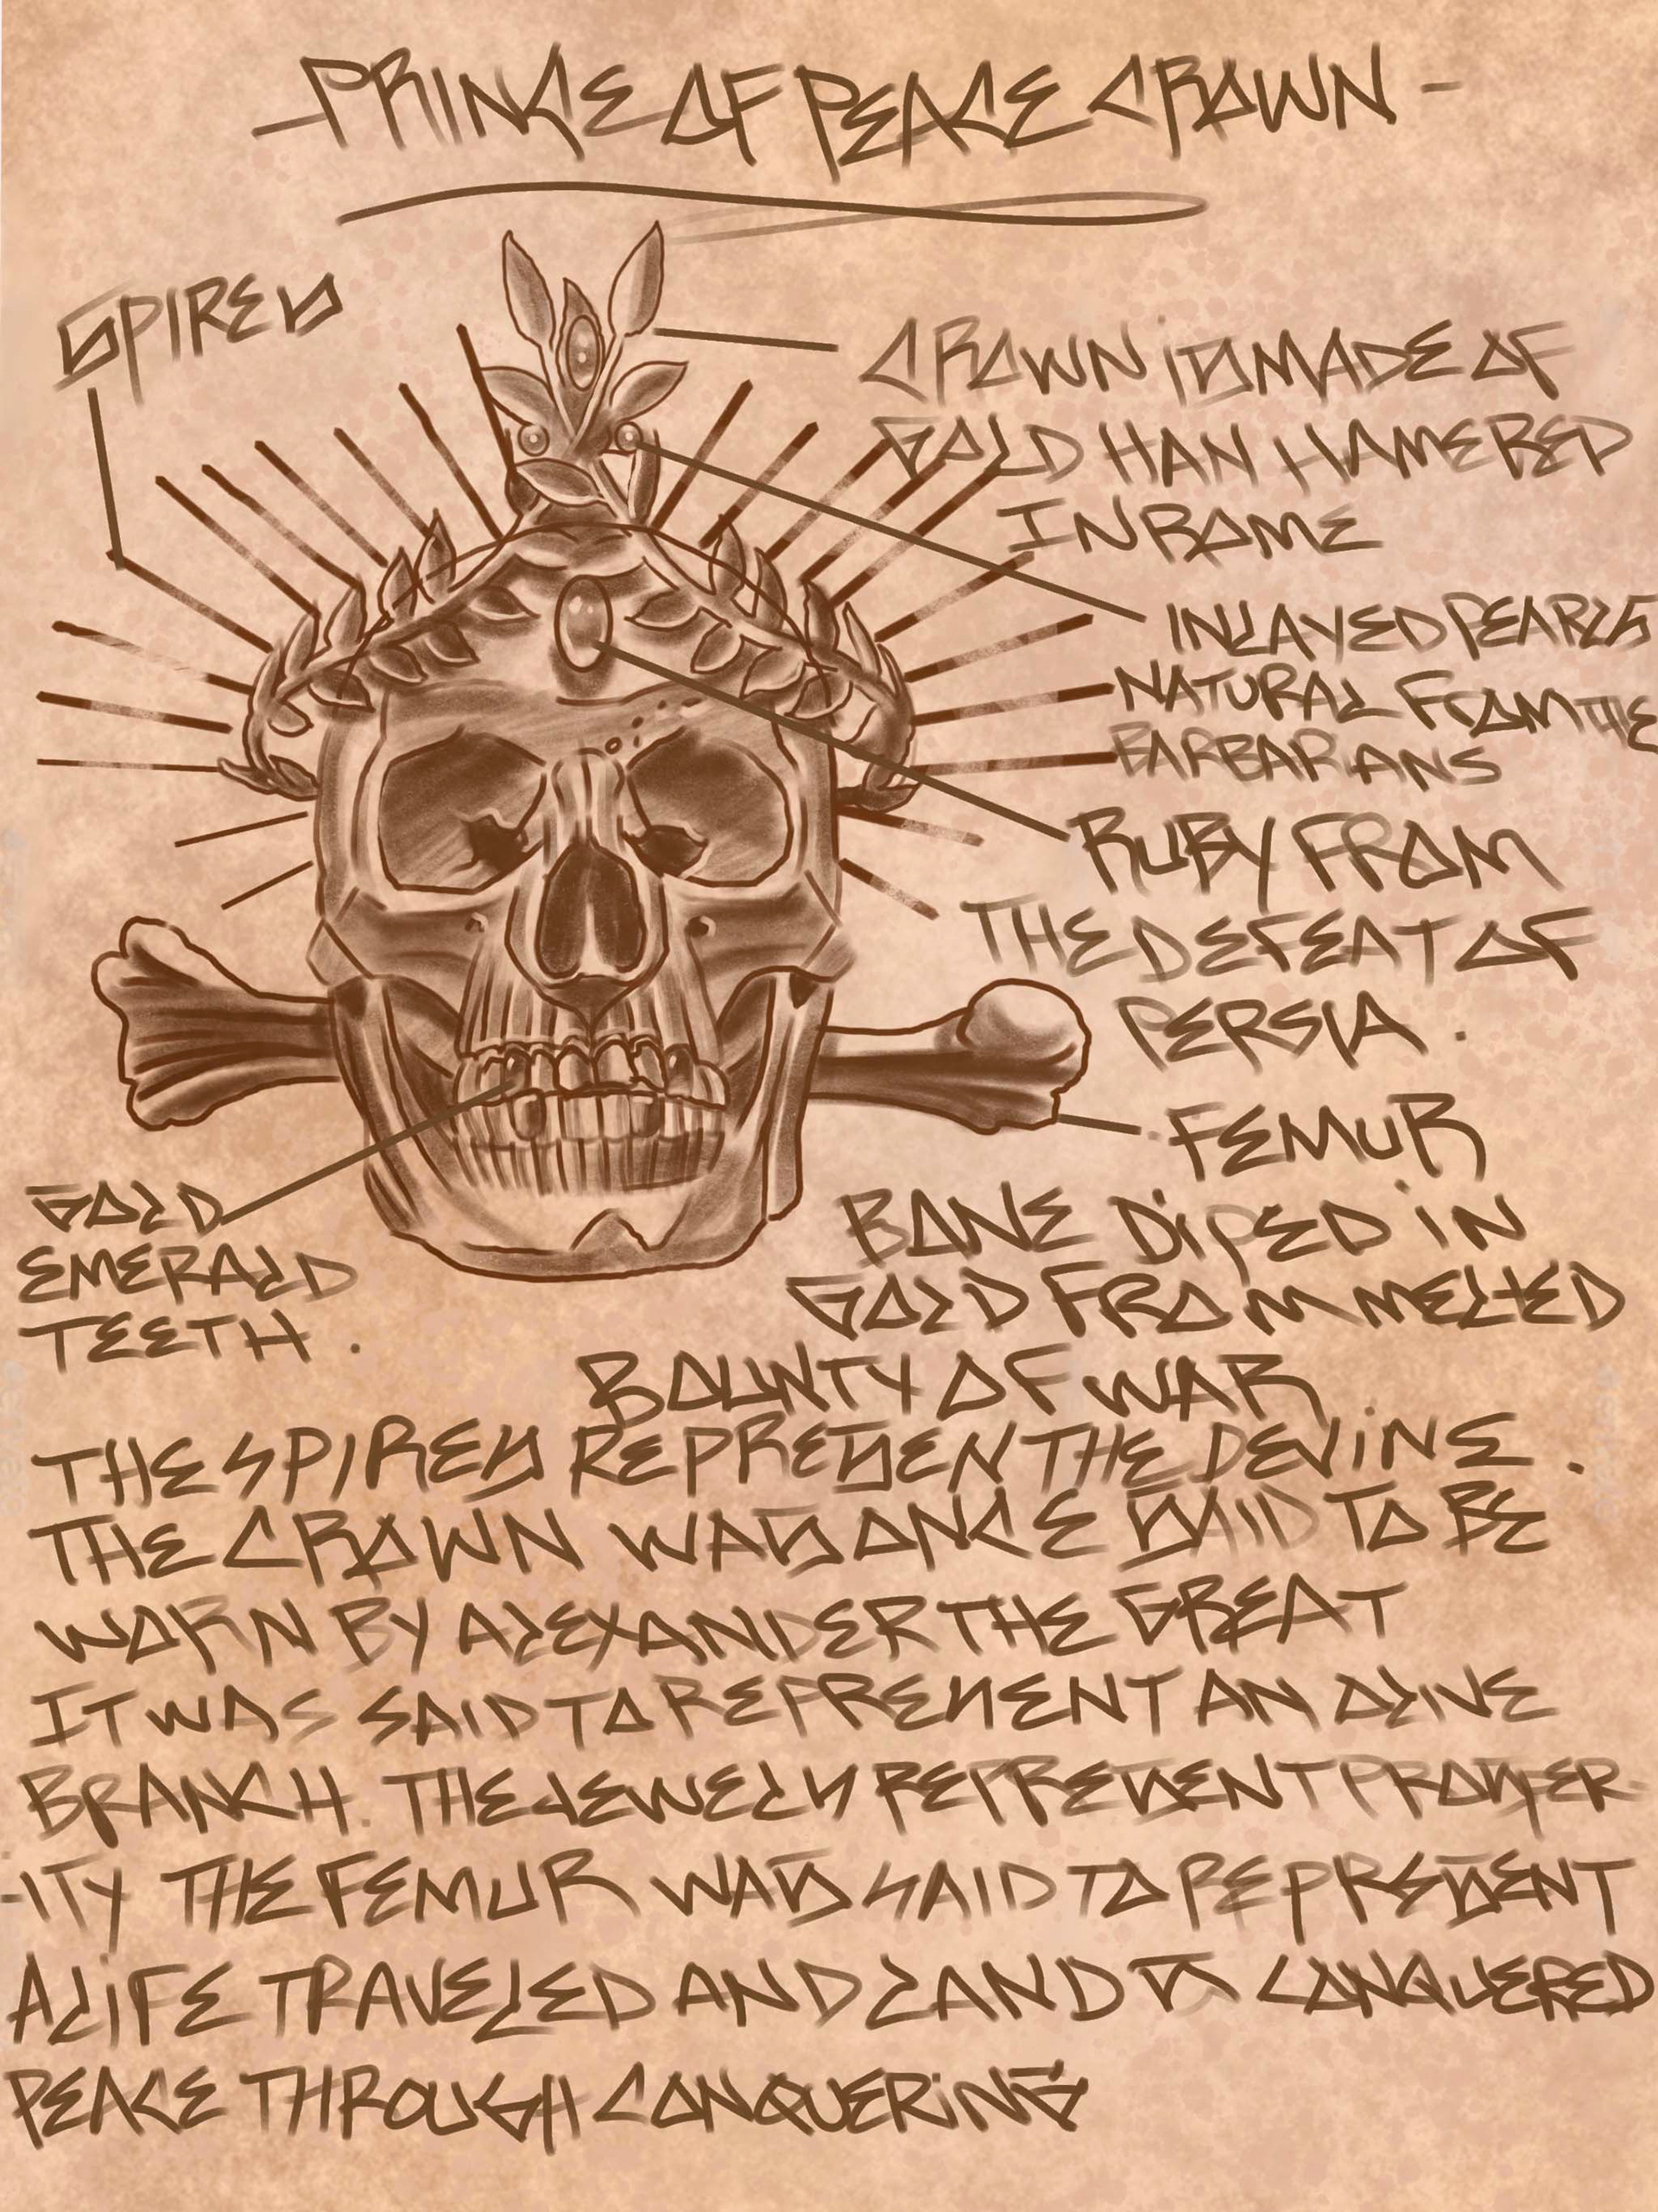 -PRINCE OF PEACE CROWN-
SPIRES
CROWN IS MADE OF
GOLD HAN HAMERED
IN ROME
INLAYED PEARLS
NATURAL FROM THE
BARBARIANS
RUBY FROM
THE DEFEAT OF
PERSIA.
FEMUR
BONE DIPED IN
GOLD FROM MELTED
BOUNTY OF WAR
GOLD
EMERALD
TEETH.
THE SPIRES REPRESEN THE DEVINE.
THE CROWN WAS ONCE SAID TO BE
WORN BY ALEXANDER THE GREAT
IT WAS SAID TO REPRESENT AN OLIVE
BRANCH. THE JEWELS REPRESENT PROSPER-
-ITY THE FEMUR WAS SAID TO REPRESENT
A LIFE TRAVELED AND LAND CONQUERED
PEACE THROUGH CONQUERING